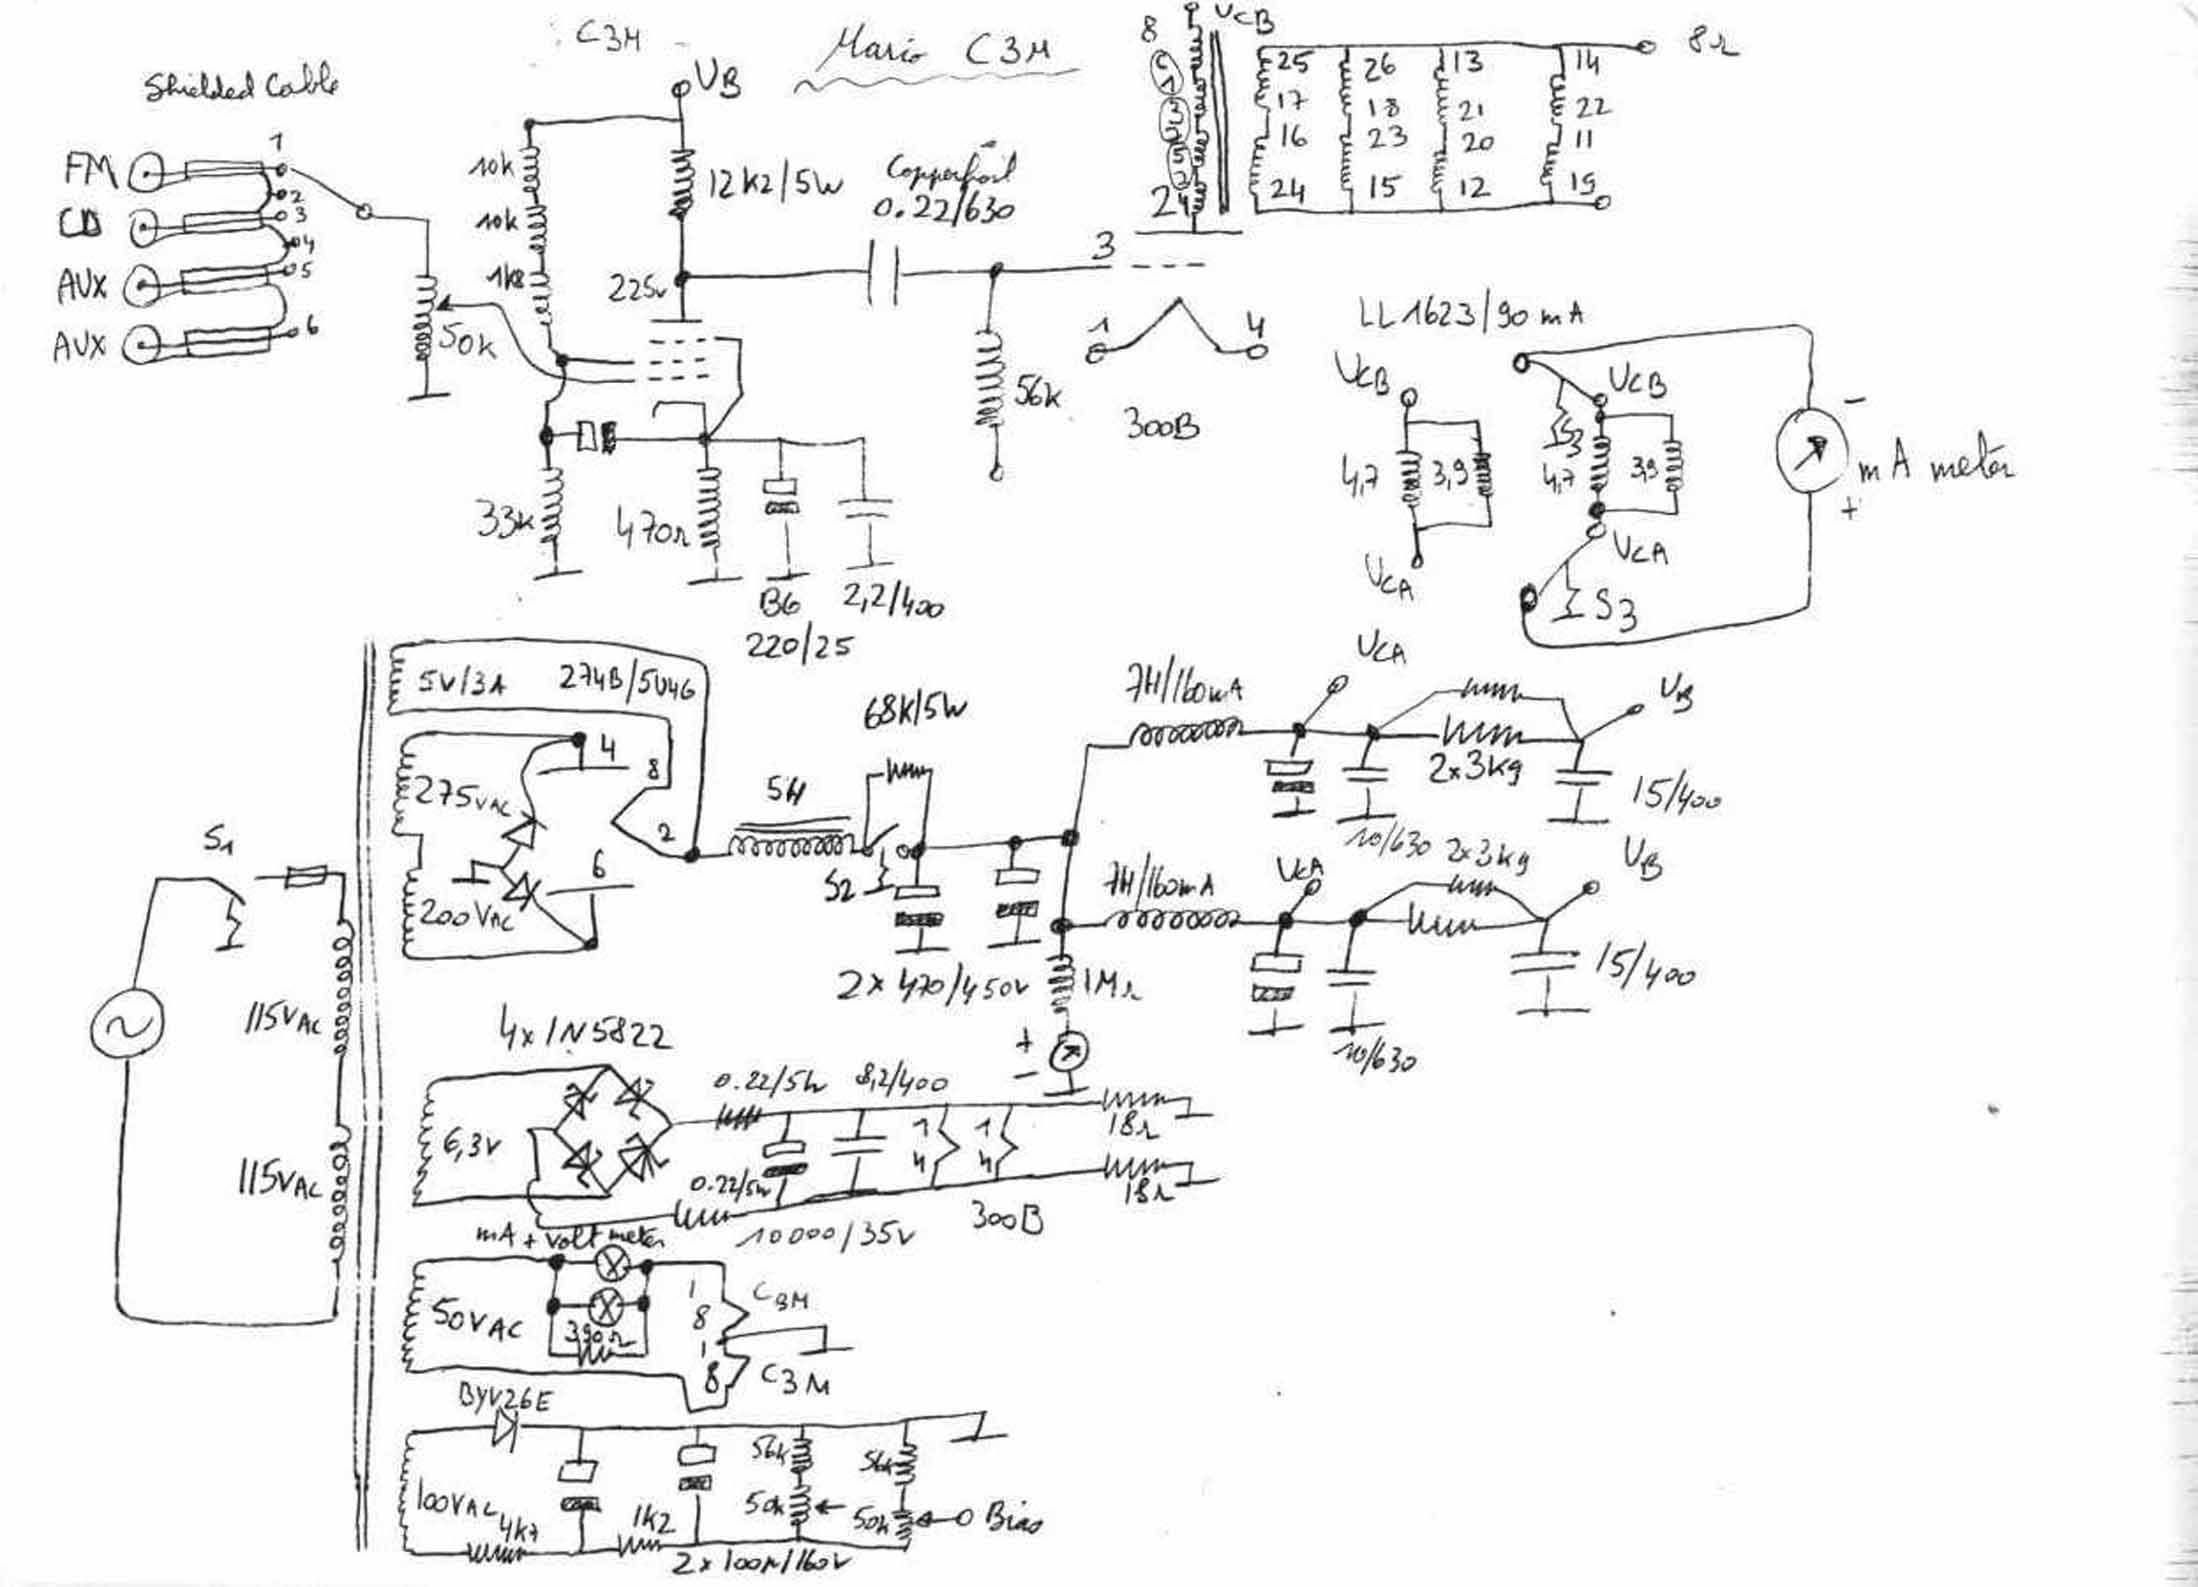 C3M
Mario C3M
Shielded Cable
FM
CD
AUX
AUX
1
2
3
4
5
6
50k
UB
10k
10k
1k8
12k2/5W
225v
Copperfoil
0.22/630
33k
470Ω
B6
220/25
2,2/400
56k
3
1
4
300B
8
UCB
24
25
17
16
24
26
18
23
15
13
21
20
12
14
22
11
19
8Ω
LL1623/90mA
UCB
4,7
3,9
UCA
UCB
S3
4,7
3,9
UCA
S3
-
+
mA meter
S1
115VAC
115VAC
5V/3A
274B/5U4G
275VAC
4
8
2
6
200VAC
5H
68K/5W
S2
2x470/450V
7H/160mA
UCA
2x3k9
UB
15/400
10/630
7H/160mA
UCA
2x3k9
UB
15/400
10/630
1MΩ
+
-
4x1N5822
6,3V
0.22/5W
8,2/400
0.22/5W
10000/35V
1
4
1
4
300B
18Ω
18Ω
mA + Volt meter
50VAC
390Ω
1
8
C3M
1
8
C3M
BYV26E
100VAC
4k7
1k2
2x100µ/160V
56k
50k
56k
50k
Bias